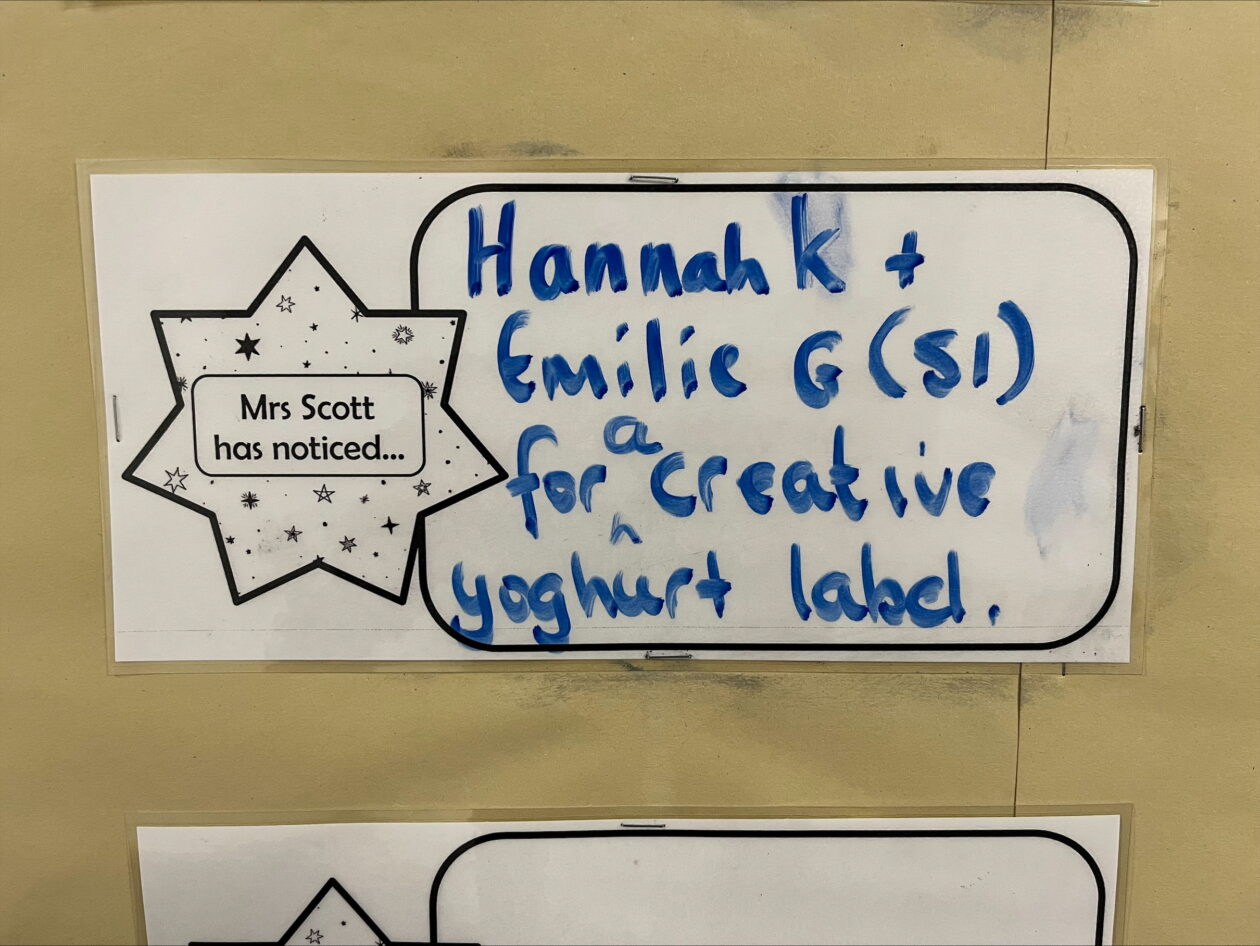 Mrs Scott
has noticed...
Hannah K +
Emilie G (S1)
for a creative
yoghurt label.